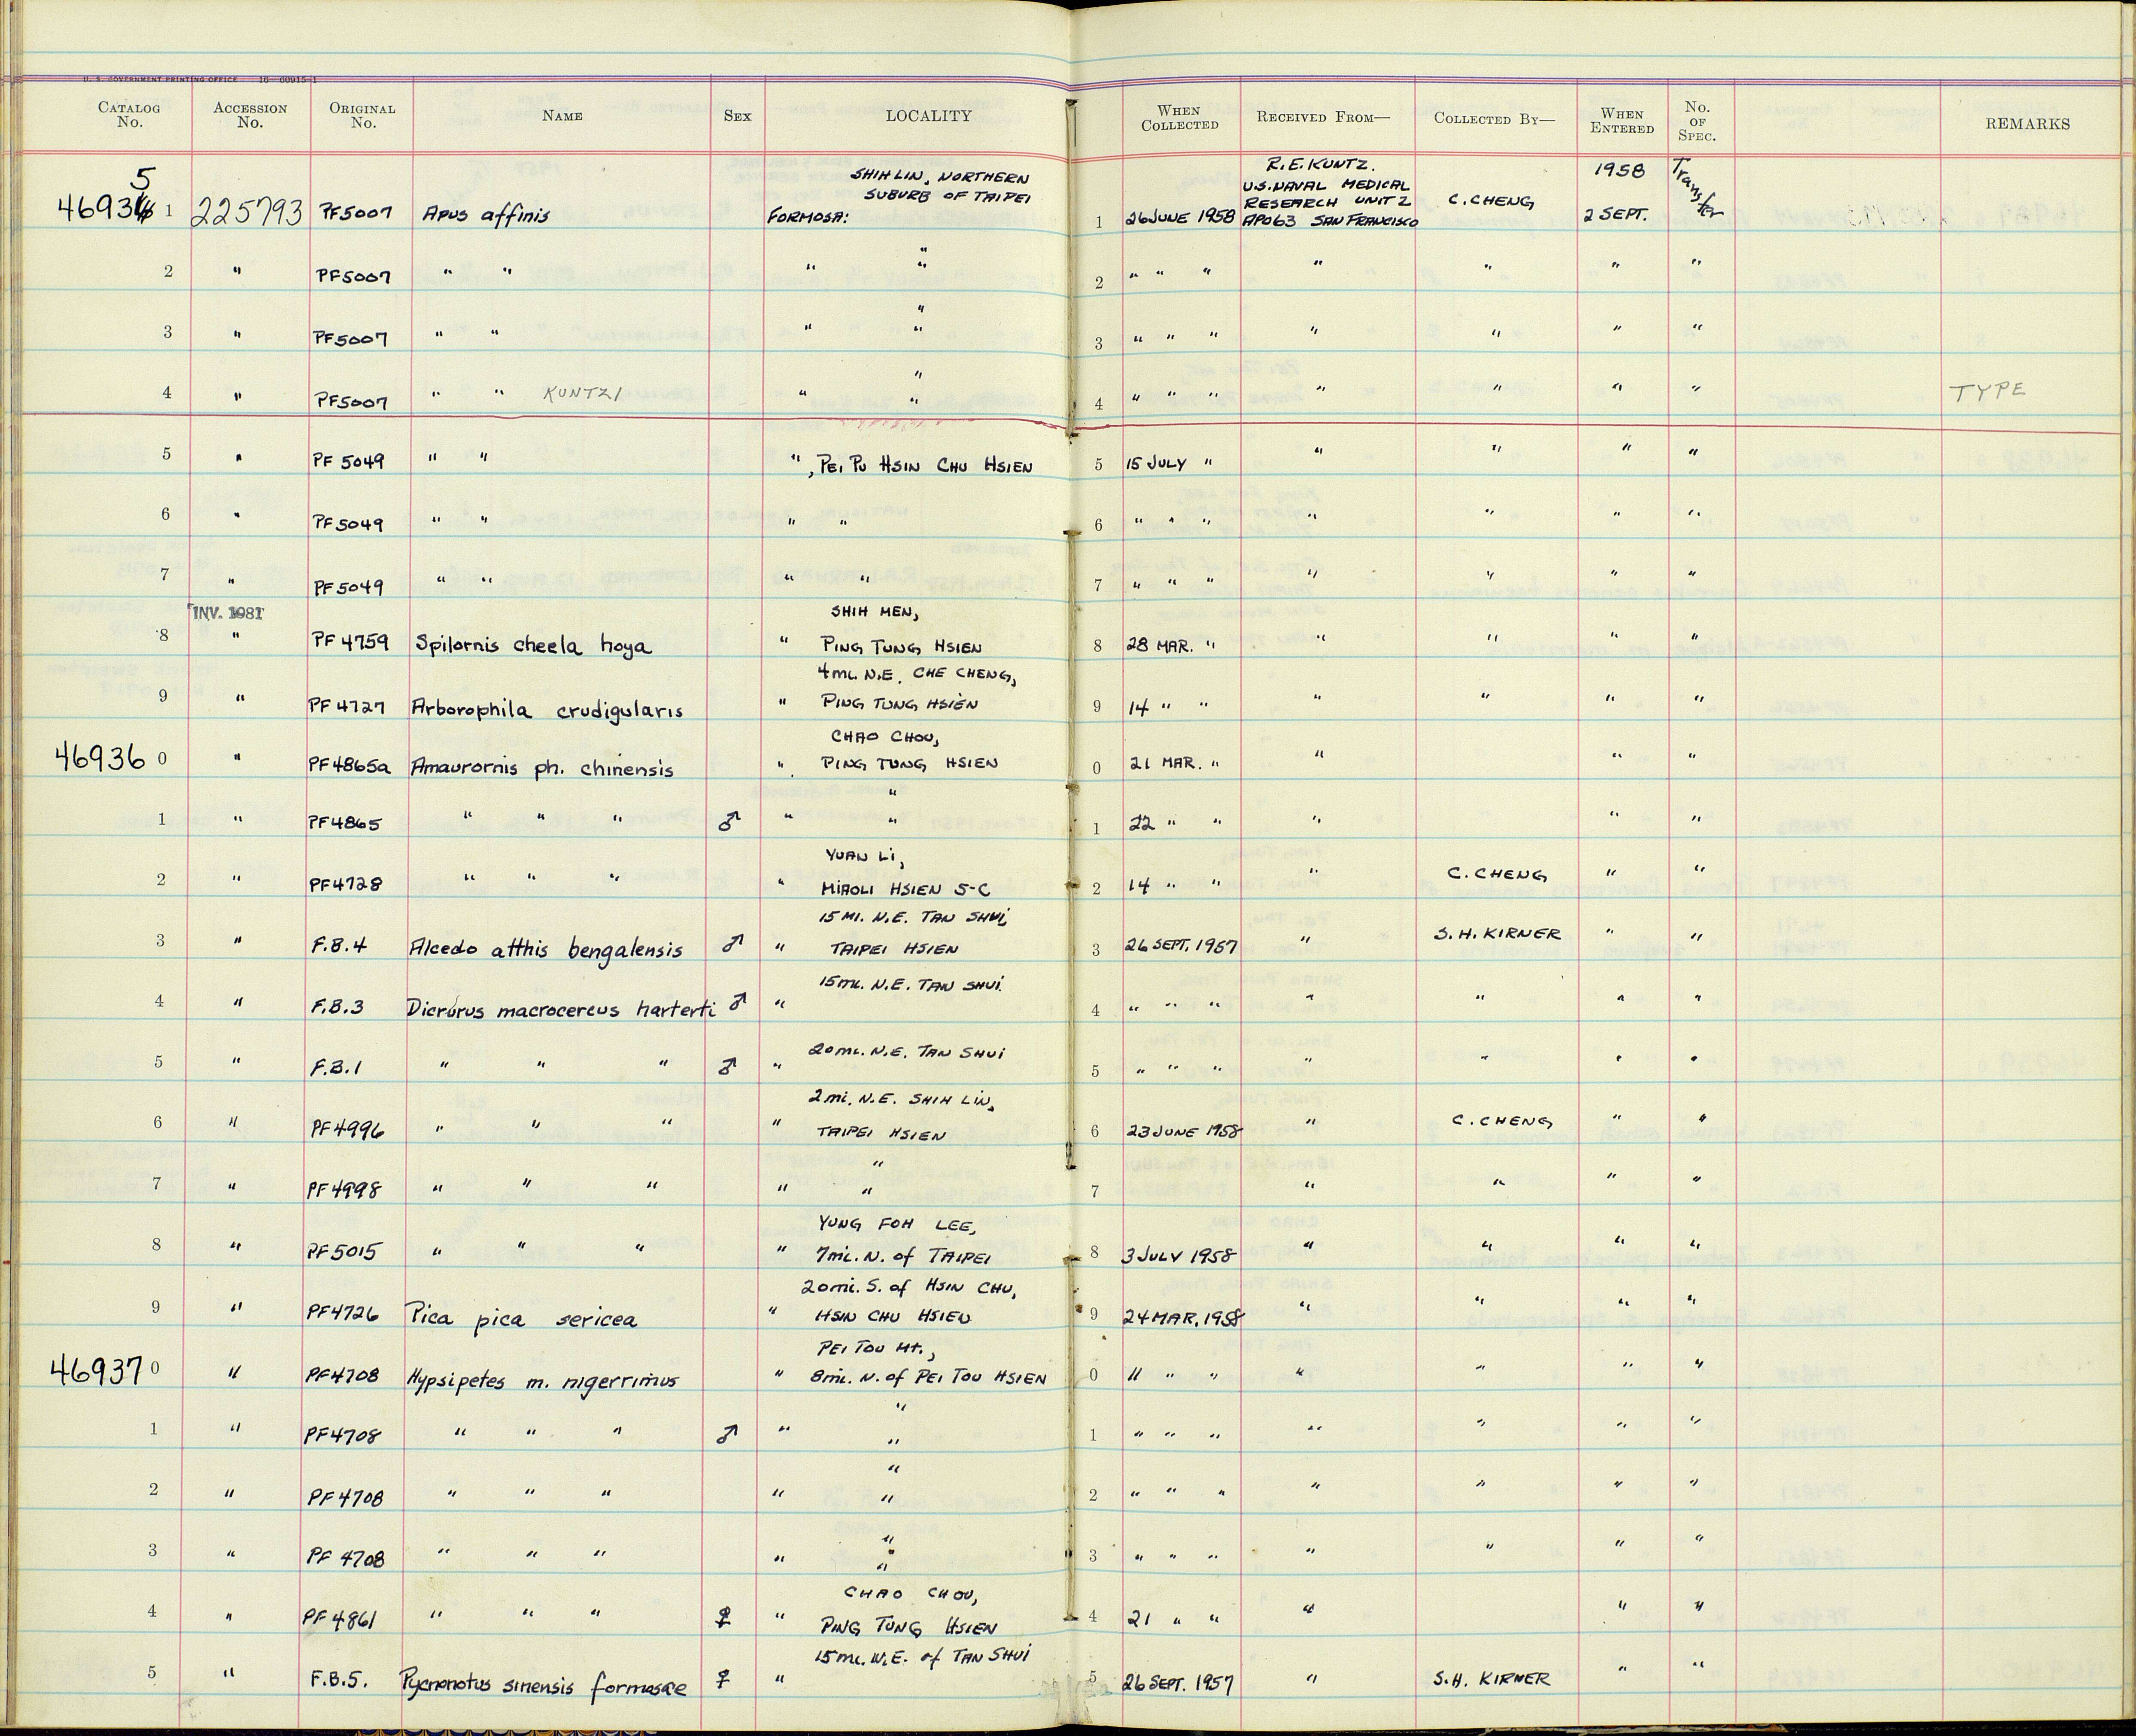 U. S. GOVERNMENT PRINTING OFFICE 16—60915-1
CATALOG No. ACCESSION No. ORIGINAL No. NAME SEX LOCALITY WHEN COLLECTED RECEIVED FROM— COLLECTED BY— WHEN ENTERED No. OF SPEC. REMARKS
5 SHIH LIN, NORTHERN R.E. KUNTZ. 1958 Transfer
SUBURB OF TAIPEI U.S. NAVAL MEDICAL
RESEARCH UNIT 2
46934 1 225793 PF5007 Apus affinis FORMOSA: 1 26 JUNE 1958 APO63 SAN FRANCISCO C. CHENG 2 SEPT.
2 " PF5007 " " " " " 2 " " " " " " "
3 " PF5007 " " " " " 3 " " " " " " "
4 " PF5007 " " KUNTZI " " " 4 " " " " " " " TYPE
5 " PF 5049 " " ", PEI PU HSIN CHU HSIEN 5 15 JULY " " " " "
6 " PF5049 " " " " 6 " " " " " " "
7 " PF5049 " " " " 7 " " " " " " "
INV. 1981 SHIH MEN,
8 " PF 4759 Spilornis cheela hoya " PING TUNG HSIEN 8 28 MAR. " " " " "
4 mi. N.E. CHE CHENG,
9 " PF 4727 Arborophila crudigularis " PING TUNG HSIEN 9 14 " " " " " "
CHAO CHOU,
46936 0 " PF4865a Amaurornis ph. chinensis " PING TUNG HSIEN 0 21 MAR. " " " "
"
1 " PF4865 " " " ♂ " " 1 22 " " " " "
YUAN Li,
2 " PF4728 " " " " MIAOLI HSIEN S-C 2 14 " " " C. CHENG " "
15 MI. N.E. TAN SHUi,
3 " F.B.4 Alcedo atthis bengalensis ♂ " TAIPEI HSIEN 3 26 SEPT. 1957 " S.H. KIRNER " "
15 mi. N.E. TAN SHUi.
4 " F.B.3 Dicrurus macrocercus harterti ♂ " 4 " " " " " " "
20 mi. N.E. TAN SHUi
5 " F.B.1 " " " ♂ " 5 " " " " " " "
2 mi. N.E. SHIH LiN,
6 " PF4996 " " " " TAIPEI HSIEN 6 23 JUNE 1958 " C. CHENG " "
"
7 " PF4998 " " " " " 7 " " " "
YUNG FOH LEE,
8 " PF5015 " " " " 7 mi. N. of TAIPEI 8 3 JULY 1958 " " " "
20 mi. S. of HSIN CHU,
9 " PF4726 Pica pica sericea " HSIN CHU HSIEN 9 24 MAR. 1958 " " " "
PEI TOU Mt.,
46937 0 " PF4708 Hypsipetes m. nigerrimus " 8 mi. N. of PEI TOU HSIEN 0 11 " " " " " "
"
1 " PF4708 " " " ♂ " " 1 " " " " " " "
"
2 " PF4708 " " " " " 2 " " " " " " "
"
3 " PF 4708 " " " " " 3 " " " " " " "
CHAO CHOU,
4 " PF 4861 " " " ♀ " PING TUNG HSIEN 4 21 " " " " "
15 mi. N.E. of TAN SHUi
5 " F.B.5. Pycnonotus sinensis formosae ♀ " 5 26 SEPT. 1957 " S.H. KIRNER " "